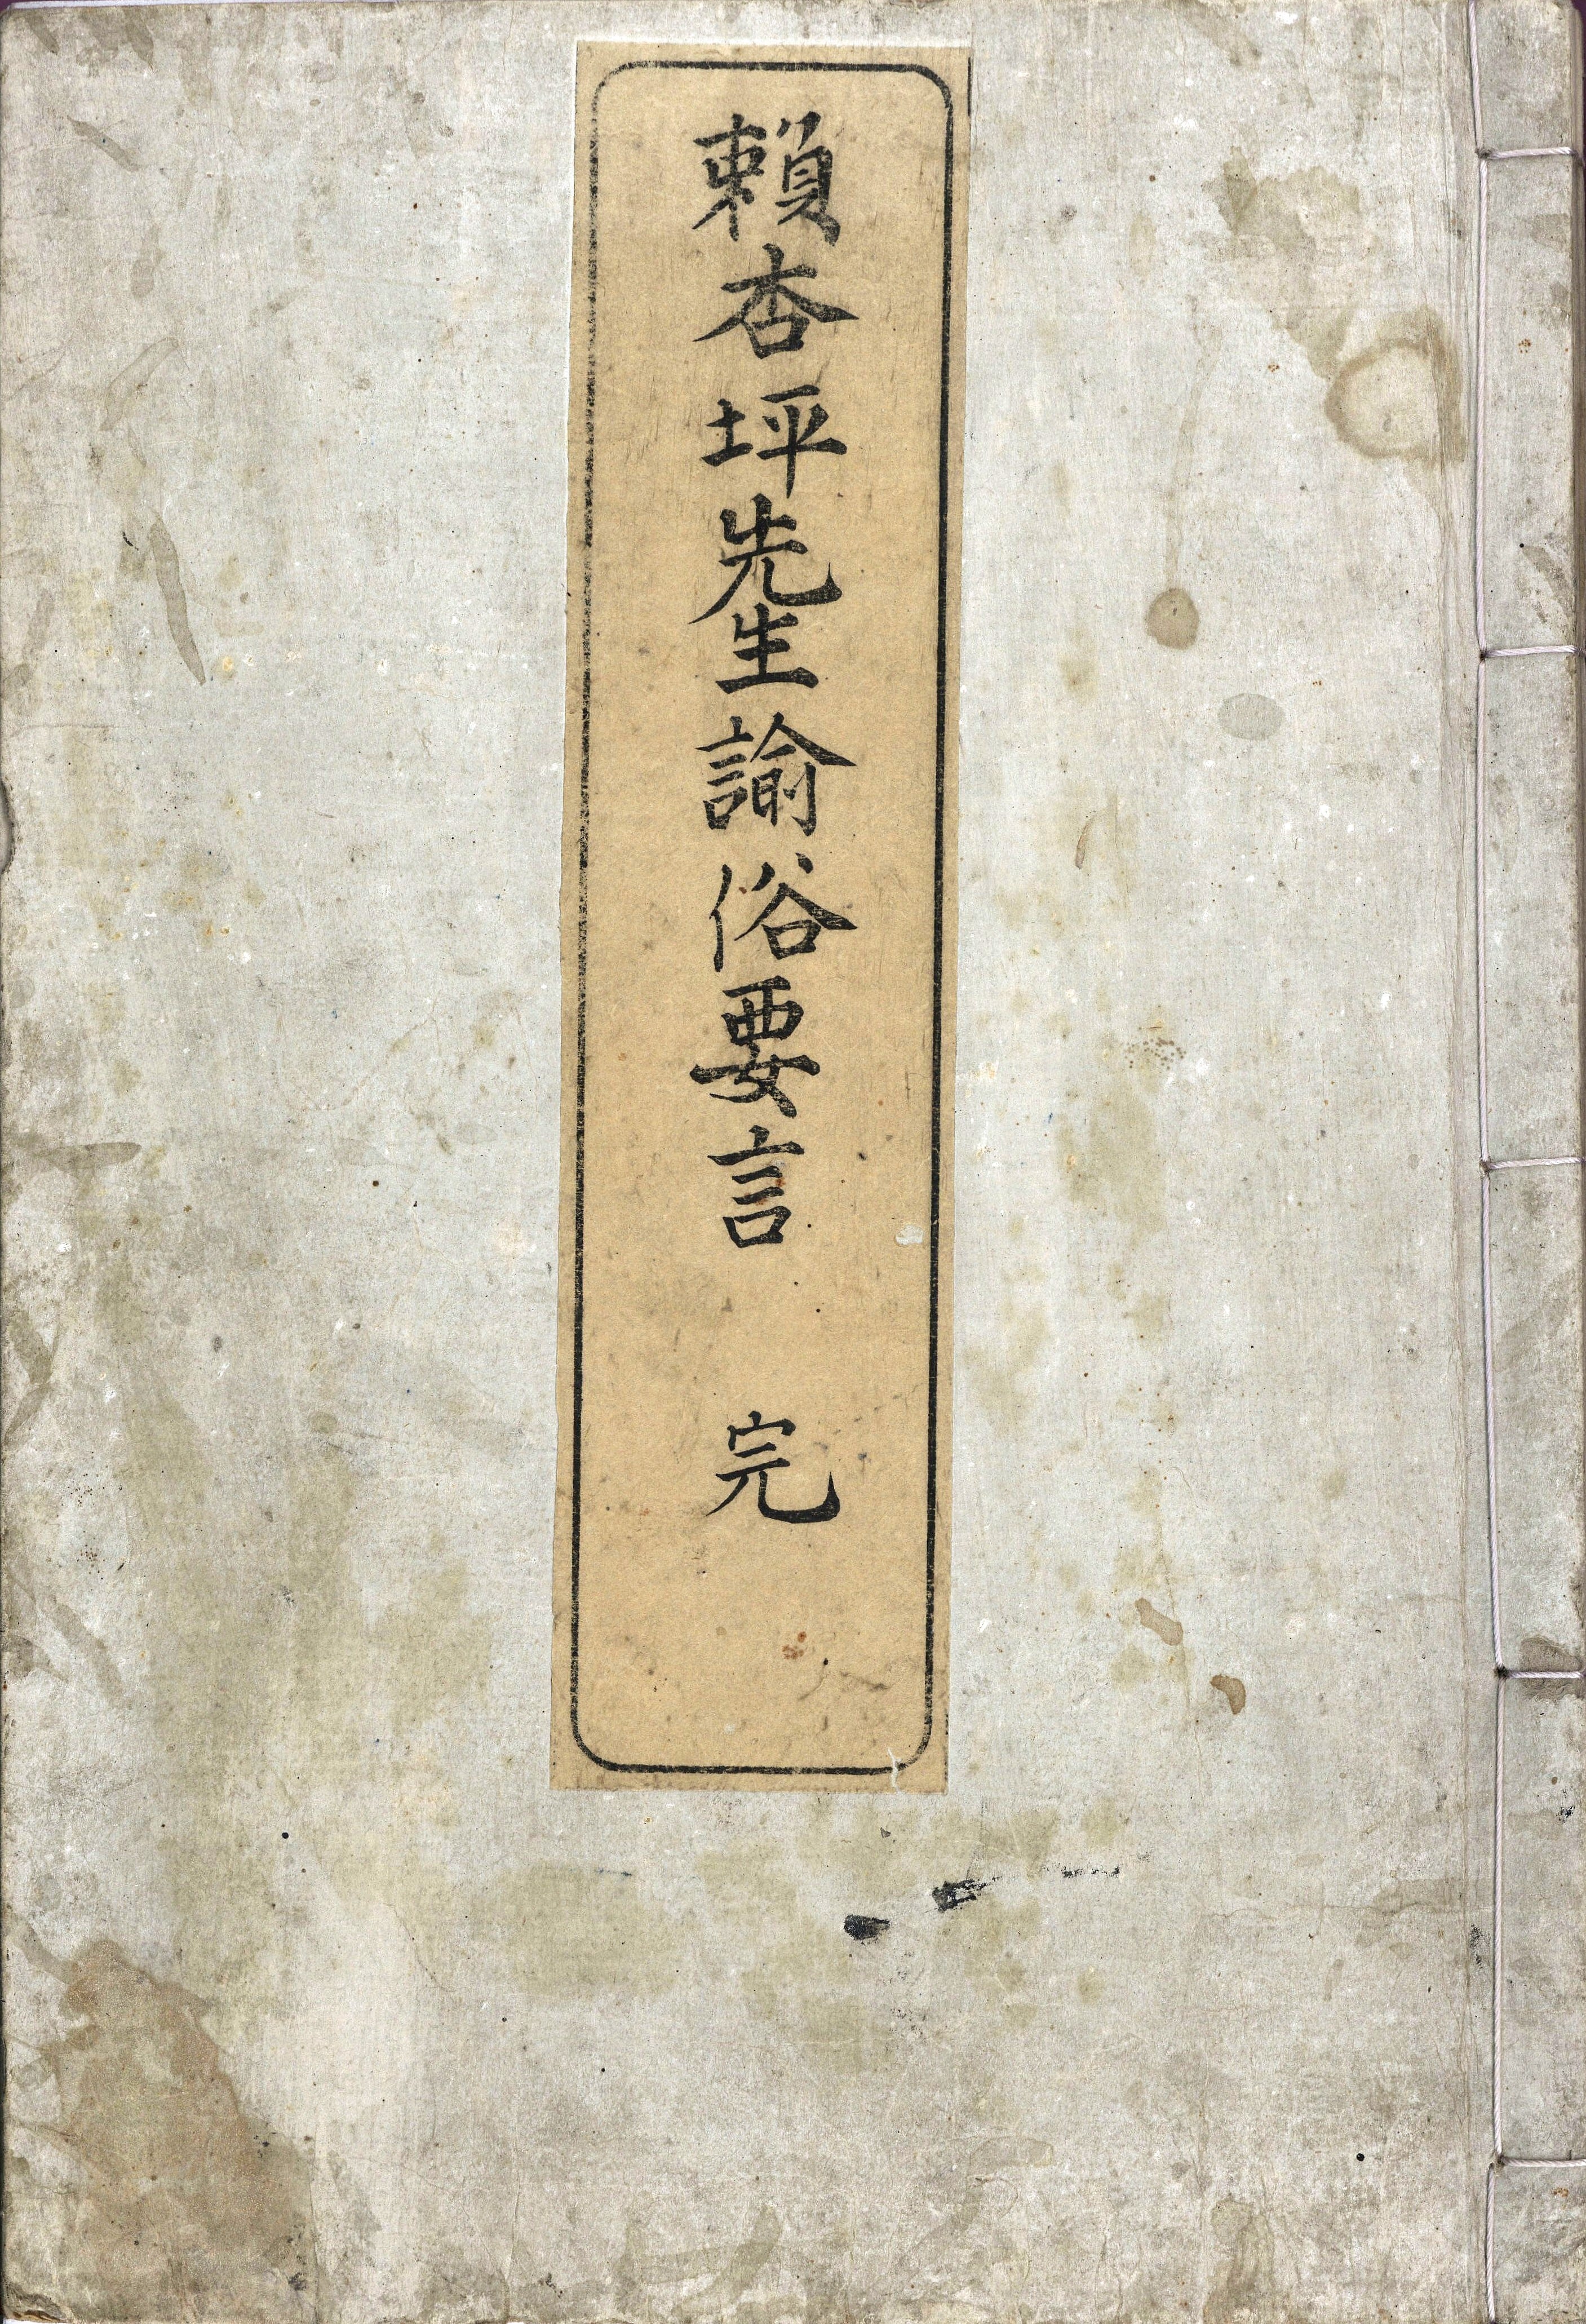 賴杏坪先生諭俗要言 完